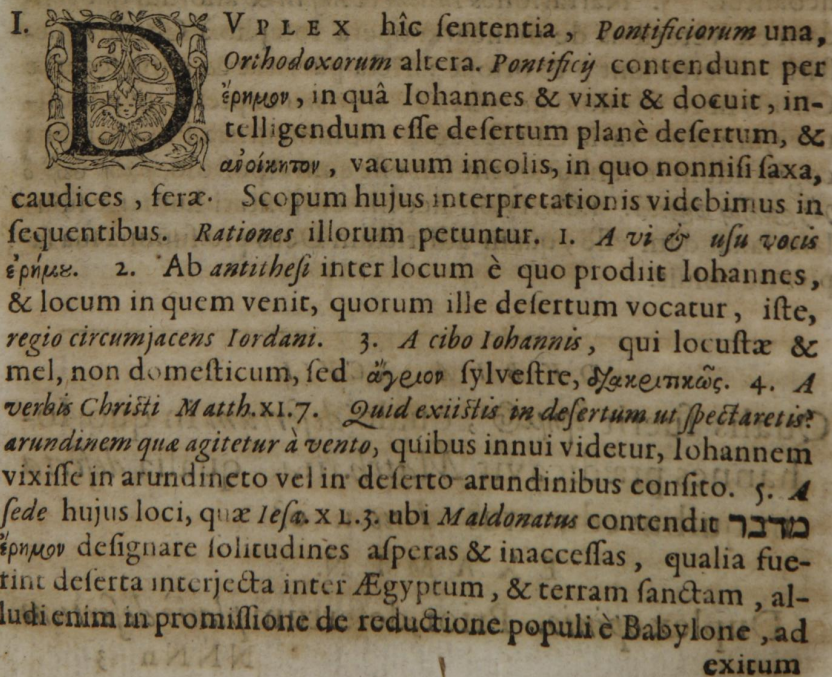 I. DVPLEX hîc ſententia, Pontificiorum una,
Orthodoxorum altera. Pontificij contendunt per
ἔρημον, in quâ Iohannes & vixit & docuit, in-
telligendum eſſe deſertum planè deſertum, &
ἀνοίκητον, vacuum incolis, in quo nonniſi ſaxa,
caudices, feræ. Scopum hujus interpretationis videbimus in
ſequentibus. Rationes illorum petuntur. 1. A vi & uſu vocis
ἐρήμου. 2. Ab antitheſi inter locum è quo prodiit Iohannes,
& locum in quem venit, quorum ille deſertum vocatur, iſte,
regio circumjacens Iordani. 3. A cibo Iohannis, qui locuſtæ &
mel, non domeſticum, ſed ἄγριον ſylveſtre, διακριτικῶς. 4. A
verbis Chriſti Matth. XI. 7. Quid exiiſtis in deſertum ut ſpectaretis?
arundinem quæ agitetur à vento, quibus innui videtur, Iohannem
vixiſſe in arundineto vel in deſerto arundinibus conſito. 5. A
ſede hujus loci, quæ Ieſa. XL. 3. ubi Maldonatus contendit מדבר
ἔρημον deſignare ſolitudines aſperas & inacceſſas, qualia fue-
rint deſerta interjecta inter Ægyptum, & terram ſanctam, al-
ludi enim in promiſſione de reductione populi è Babylone, ad
exitum